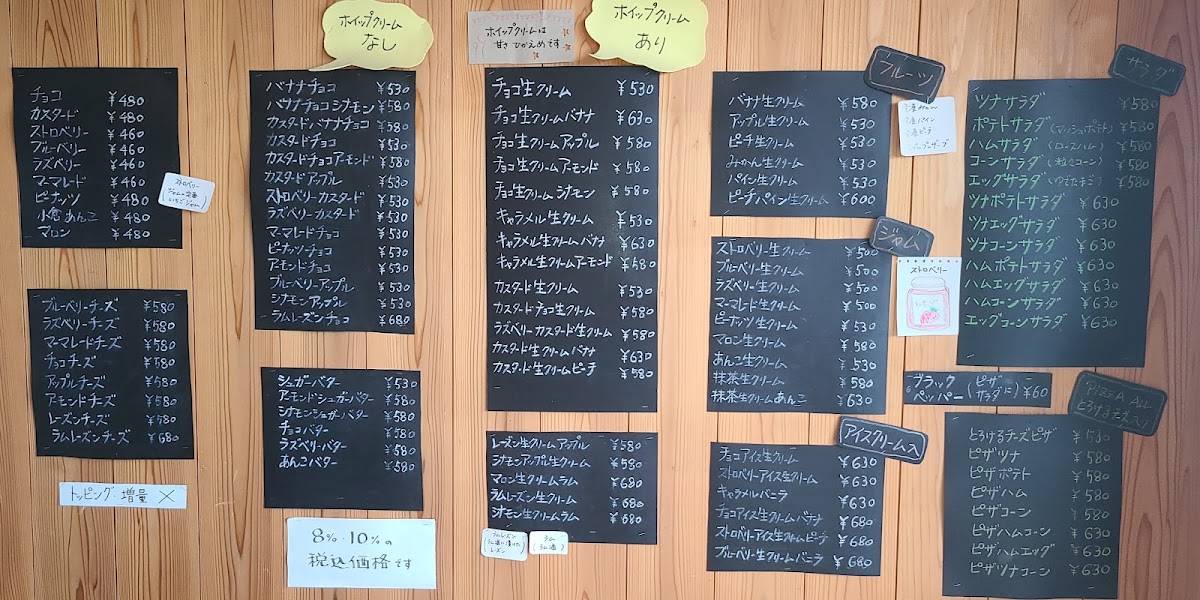 ホイップクリーム
なし
チョコ ¥480
カスタード ¥480
ストロベリー ¥460
ブルーベリー ¥460
ラズベリー ¥460
マーマレード ¥460
ピーナッツ ¥480
小倉あんこ ¥480
マロン ¥480
ストロベリー
ブルーベリーチーズ ¥580
ラズベリーチーズ ¥580
マーマレードチーズ ¥580
チョコチーズ ¥580
アップルチーズ ¥580
アーモンドチーズ ¥580
レーズンチーズ ¥580
ラムレーズンチーズ ¥680
トッピング・増量 ×
バナナチョコ ¥530
バナナチョコシナモン ¥580
カスタードバナナチョコ ¥580
カスタードチョコ ¥530
カスタードチョコアーモンド ¥580
カスタードアップル ¥530
ストロベリーカスタード ¥530
ラズベリーカスタード ¥530
マーマレードチョコ ¥530
ピーナッツチョコ ¥530
アーモンドチョコ ¥530
ブルーベリーアップル ¥530
シナモンアップル ¥530
ラムレーズンチョコ ¥680
シュガーバター ¥530
アーモンドシュガーバター ¥580
シナモンシュガーバター ¥580
チョコバター ¥580
ラズベリーバター ¥580
あんこバター ¥580
8%・10%の
税込価格です
ホイップクリームは
甘さひかえめです
ホイップクリーム
あり
チョコ生クリーム ¥530
チョコ生クリームバナナ ¥630
チョコ生クリームアップル ¥580
チョコ生クリームアーモンド ¥580
チョコ生クリームシナモン ¥580
キャラメル生クリーム ¥530
キャラメル生クリームバナナ ¥630
キャラメル生クリームアーモンド ¥580
カスタード生クリーム ¥530
カスタードチョコ生クリーム ¥580
ラズベリーカスタード生クリーム ¥580
カスタード生クリームバナナ ¥630
カスタード生クリームピーチ ¥580
レーズン生クリームアップル ¥580
シナモンアップル生クリーム ¥580
マロン生クリームラム ¥680
ラムレーズン生クリーム ¥680
シナモン生クリームラム ¥680
ラムレーズン
ラム酒に漬けた
レーズン
ラム
(ラム酒)
フルーツ
バナナ生クリーム ¥580
アップル生クリーム ¥530
ピーチ生クリーム ¥530
みかん生クリーム ¥530
パイン生クリーム ¥530
ピーチパイン生クリーム ¥600
ジャム
ストロベリー生クリーム ¥500
ブルーベリー生クリーム ¥500
ラズベリー生クリーム ¥500
マーマレード生クリーム ¥500
ピーナッツ生クリーム ¥530
マロン生クリーム ¥580
あんこ生クリーム ¥530
抹茶生クリーム ¥580
抹茶生クリームあんこ ¥630
ストロベリー
アイスクリーム入
チョコアイス生クリーム ¥630
ストロベリーアイス生クリーム ¥630
キャラメルバニラ ¥630
チョコアイス生クリームバナナ ¥680
ストロベリーアイス生クリームピーチ ¥680
ブルーベリー生クリームバニラ ¥680
サラダ
ツナサラダ ¥580
ポテトサラダ(マッシュポテト) ¥580
ハムサラダ(ロースハム) ¥580
コーンサラダ(粒コーン) ¥580
エッグサラダ ¥580
ツナポテトサラダ ¥630
ツナエッグサラダ ¥630
ツナコーンサラダ ¥630
ハムポテトサラダ ¥630
ハムエッグサラダ ¥630
ハムコーンサラダ ¥630
エッグコーンサラダ ¥630
ブラック
ペッパー (ピザ サラダに) ¥60
PIZZA ALL
とろけるチーズピザ ¥530
ピザツナ ¥580
ピザポテト ¥580
ピザハム ¥580
ピザコーン ¥580
ピザハムコーン ¥630
ピザハムエッグ ¥630
ピザツナコーン ¥630